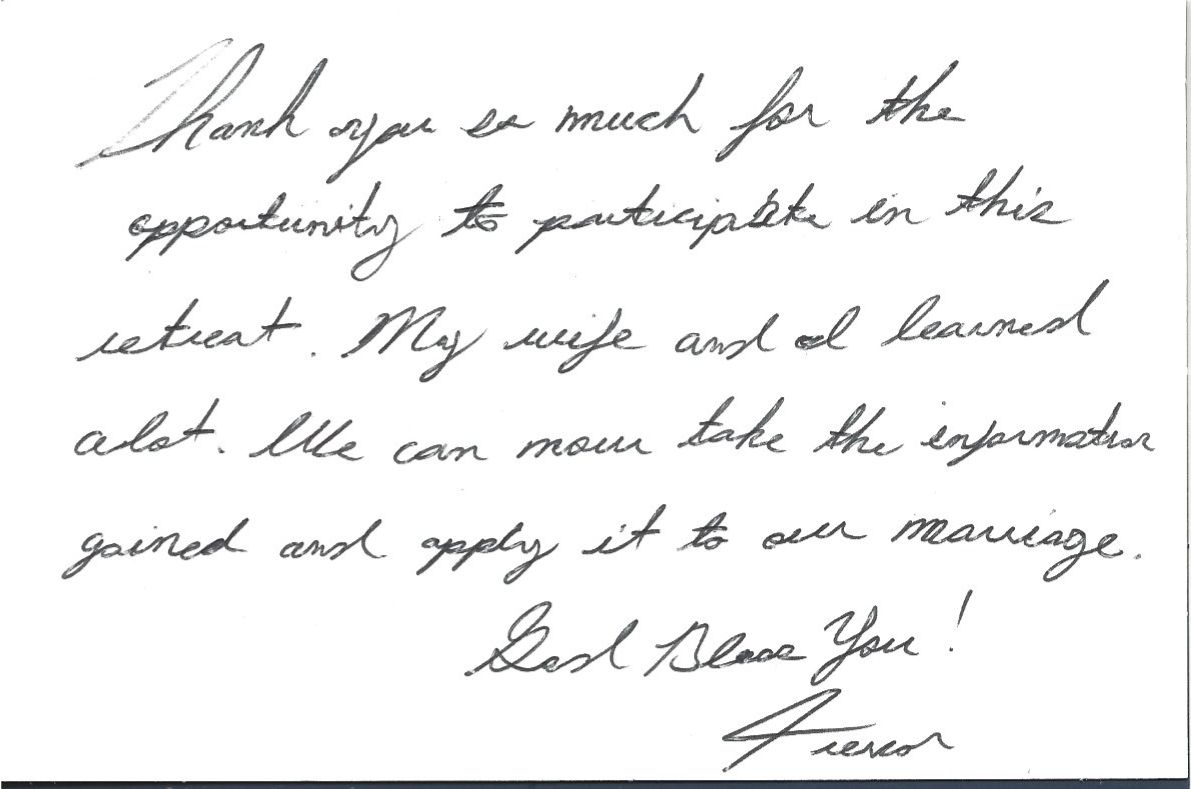 Thank you so much for the
opportunity to participate in this
retreat. My wife and I learned
alot. We can now take the information
gained and apply it to our marriage.
God Bless You!